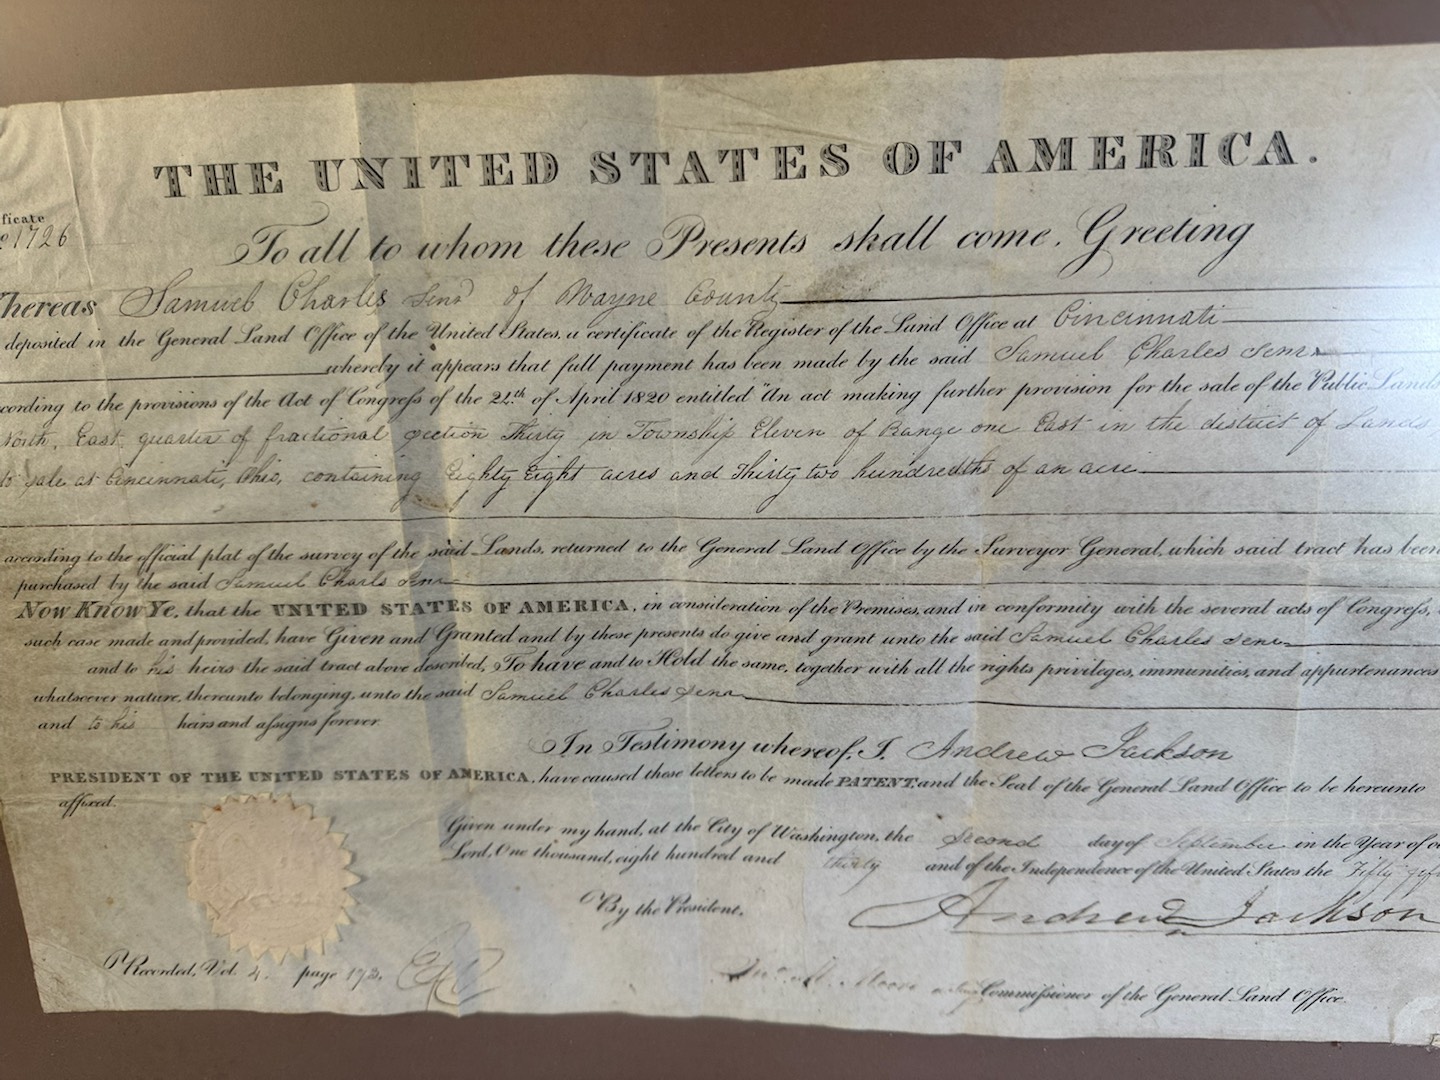 THE UNITED STATES OF AMERICA.
ficate
1726
To all to whom these Presents shall come, Greeting
Whereas Samuel Charles Senr of Wayne County
deposited in the General Land Office of the United States, a certificate of the Register of the Land Office at Cincinnati
whereby it appears that full payment has been made by the said Samuel Charles Senr
cording to the provisions of the Act of Congress of the 24th of April 1820 entitled "An act making further provision for the sale of the Public Lands
North East quarter of fractional section Thirty in Township Eleven of Range one East in the district of Lands
to sale at Cincinnati, Ohio, containing Eighty Eight acres and Thirty two hundredths of an acre
according to the official plat of the survey of the said Lands, returned to the General Land Office by the Surveyor General, which said tract has been
purchased by the said Samuel Charls Senr
Now Know Ye, that the UNITED STATES OF AMERICA, in consideration of the Premises, and in conformity with the several acts of Congress,
such case made and provided, have Given and Granted and by these presents do give and grant unto the said Samuel Charles Senr
and to his heirs the said tract above described, To have and to Hold the same, together with all the rights privileges, immunities, and appurtenances
whatsoever nature, thereunto belonging, unto the said Samuel Charles Senr
and to his heirs and assigns forever
In Testimony whereof, I, Andrew Jackson
PRESIDENT OF THE UNITED STATES OF AMERICA, have caused these letters to be made PATENT, and the Seal of the General Land Office to be hereunto
affixed.
Given under my hand, at the City of Washington, the second day of September in the Year of
Lord, One thousand, eight hundred and thirty and of the Independence of the United States the Fifty
By the President,
Andrew Jackson
Recorded, Vol. 4. page 173.
Moore Commissioner of the General Land Office.